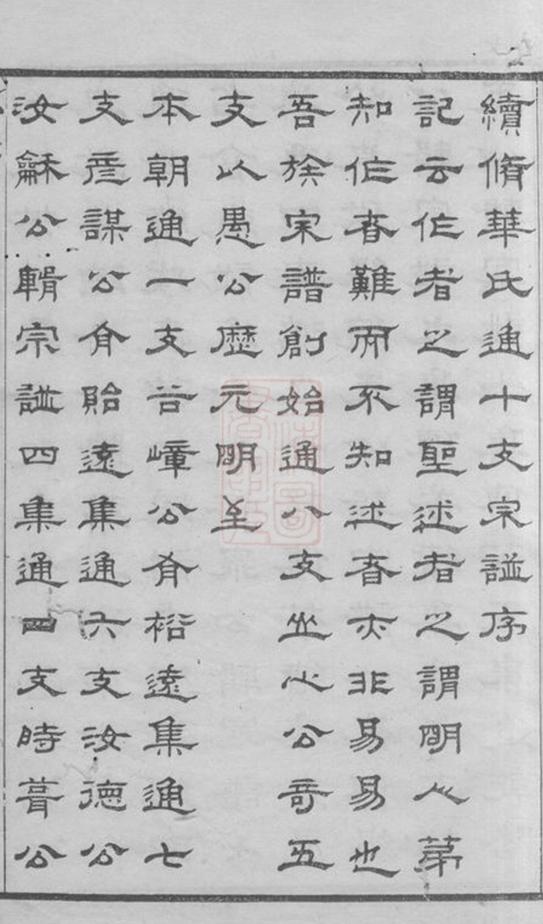 續脩華氏通十支宗譜序
記云作者之謂聖述者之謂明人第
知作者難而不知述者亦非易易也
吾族宗譜創始通八支坐心公哥五
支以愚公歷元明至
本朝通一支谷嶂公有裕遠集通七
支彥謀公有貽遠集通六支汝德公
汝龢公輯宗譜四集通四支時葺公